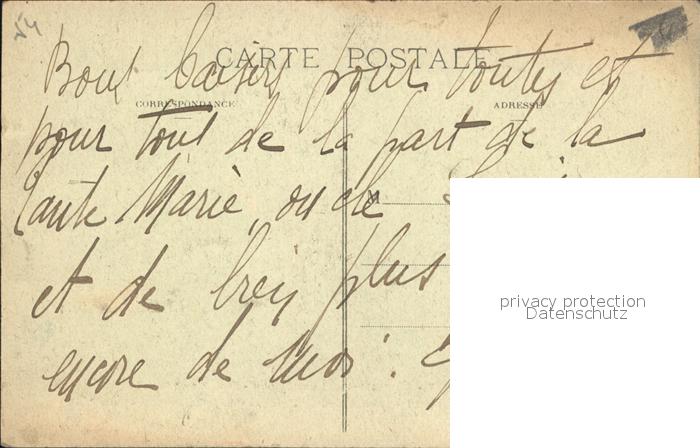 54
CARTE POSTALE
Bons baisers pour toutes et
CORRESPONDANCE ADRESSE
pour tous de la part de la
tante Marie, ou de
M
et de bien plus
encore de moi.
privacy protection
Datenschutz